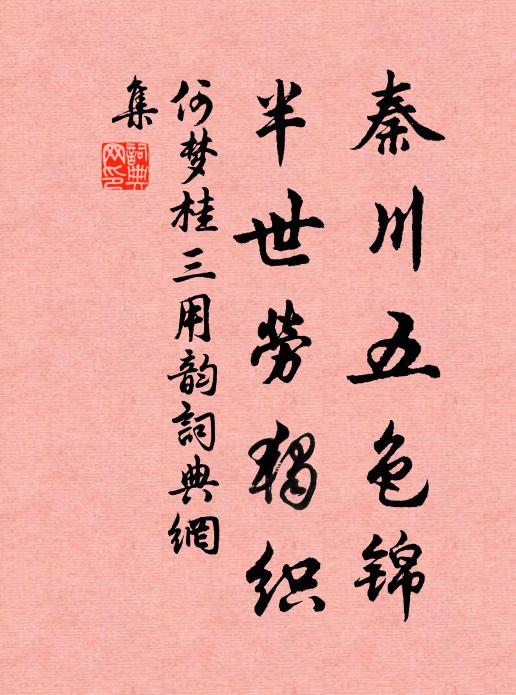 秦川五色锦
半世劳独织
何梦桂三用韵詞典網
集
詞典網印